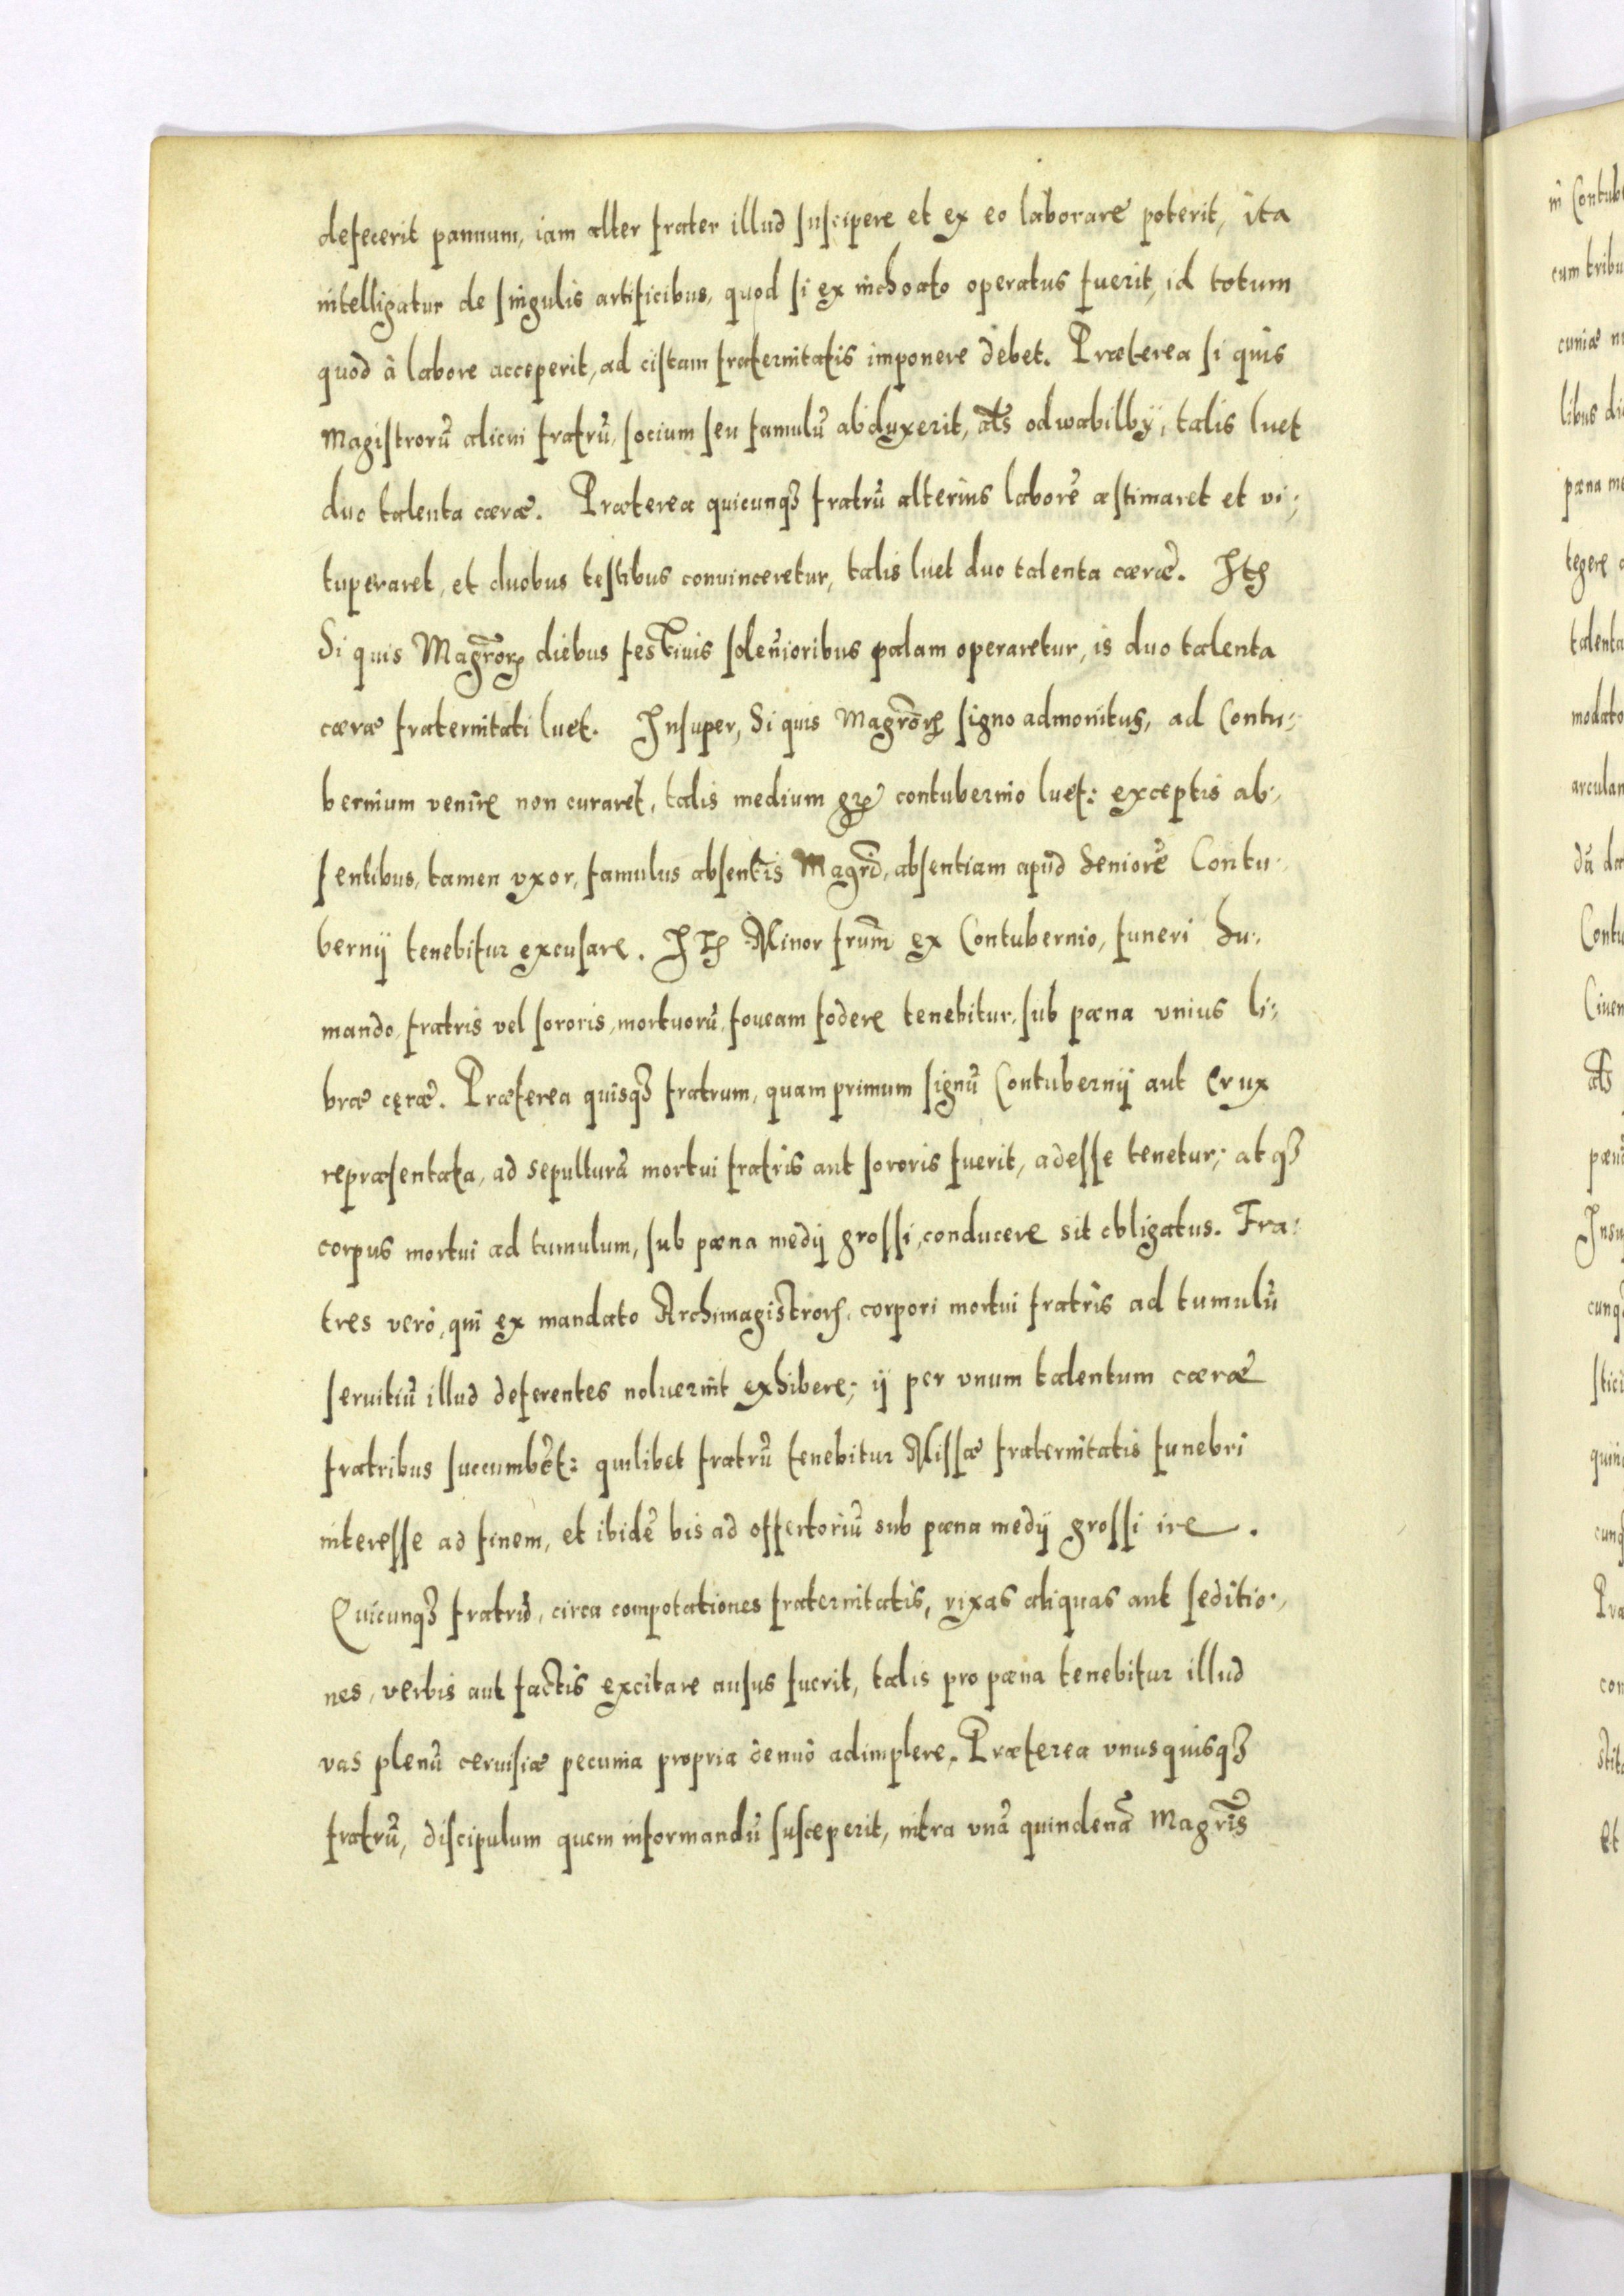 defecerit pannum, iam alter frater illud suscipere et ex eo laborare poterit, ita
intelligatur de singulis artificibus, quod si ex inchoato operatus fuerit, id totum
quod à labore acceperit, ad cistam fraternitatis imponere debet. Præterea si quis
Magistrorũ alicui fratrũ, socium seu famulũ abduxerit, at̃s odwabilby, talis luet
duo talenta cæræ. Præterea quicunqȝ fratrũ alterius laborẽ æstimaret et vi:
tuperaret, et duobus testibus convinceretur, talis luet duo talenta cæræ. Itꝫ
Si quis Magr̃orꝫ diebus festiuis solen̄ioribus palam operaretur, is duo talenta
cæræ fraternitati luet. Insuper, Si quis Magr̃orꝫ signo admonitus, ad Contu:
bernium venire non curaret, talis medium gr̃ contubernio luet: exceptis ab:
sentibus, tamen vxor, famulus absentis Magr̃i, absentiam apud Seniorẽ Contu:
bernij tenebitur excusare. Itꝫ Minor frum̃ ex Contubernio, funeri hu:
mando, fratris vel sororis, mortuorũ, foueam fodere tenebitur, sub pæna vnius li:
bræ cęræ. Præterea quisqȝ fratrum, quam primum signũ Contubernij aut Crux
repræsentata, ad sepulturã mortui fratris aut sororis fuerit, adesse tenetur; atqȝ
corpus mortui ad tumulum, sub pæna medij grossi, conducere sit obligatus. Fra:
tres verò, qui ex mandato Archimagistrorꝫ, corpori mortui fratris ad tumulũ
seruitiũ illud deferentes noluerint exhibere; ij per vnum talentum cæræ
fratribus succumbẽt: quilibet fratrũ tenebitur Missæ fraternitatis funebri
interesse ad finem, et ibidẽ bis ad offertoriũ sub pæna medij grossi ire.
Quicunqȝ fratrũ, circa compotationes fraternitatis, rixas aliquas aut seditio:
nes, verbis aut factis excitare ausus fuerit, talis pro pæna tenebitur illud
vas plenũ ceruisiæ pecunia propria denuò adimplere. Præterea vnusquisqȝ
fratrũ, discipulum quem informandũ susceperit, intra vnã quindenã Magr̃is